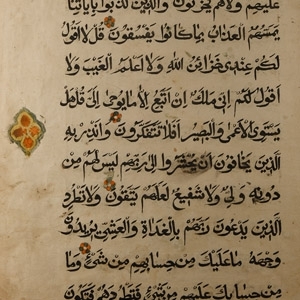 عليهم ولاهم يحزنون والذين كذبوا بآياتنا
يمسهم العذاب بما كانوا يفسقون قل لا اقول
لكم عندي خزائن الله ولا اعلم الغيب ولا
اقول لكم اني ملك ان اتبع الا ما يوحى الي قل هل
يستوي الاعمى والبصير افلا تتفكرون وانذر به
الذين يخافون ان يحشروا الى ربهم ليس لهم من
دونه ولي ولا شفيع لعلهم يتقون ولا تطرد
الذين يدعون ربهم بالغداة والعشي يريدون
وجهه ما عليك من حسابهم من شيء وما
من حسابك عليهم من شيء فتطردهم فتكون